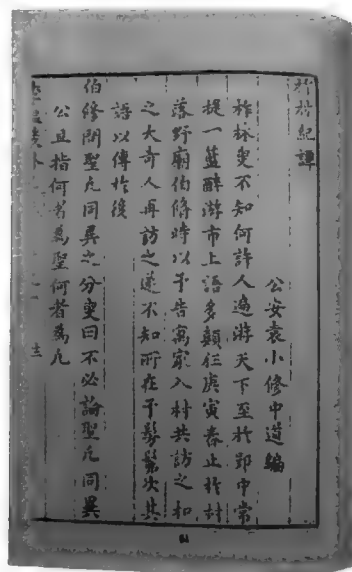 柞林紀譚
公安袁小修中道編
柞林叟不知何許人遍游天下至於郢中常
提一籃醉游市上語多顛狂庚寅春止於村
落野廟伯修時以予告寓家入村共訪之扣
之大奇人再訪之遂不知所在予髣髴次其
語以傳於後
伯修問聖凡同異之分叟曰不必論聖凡同異
公且指何者為聖何者為凡